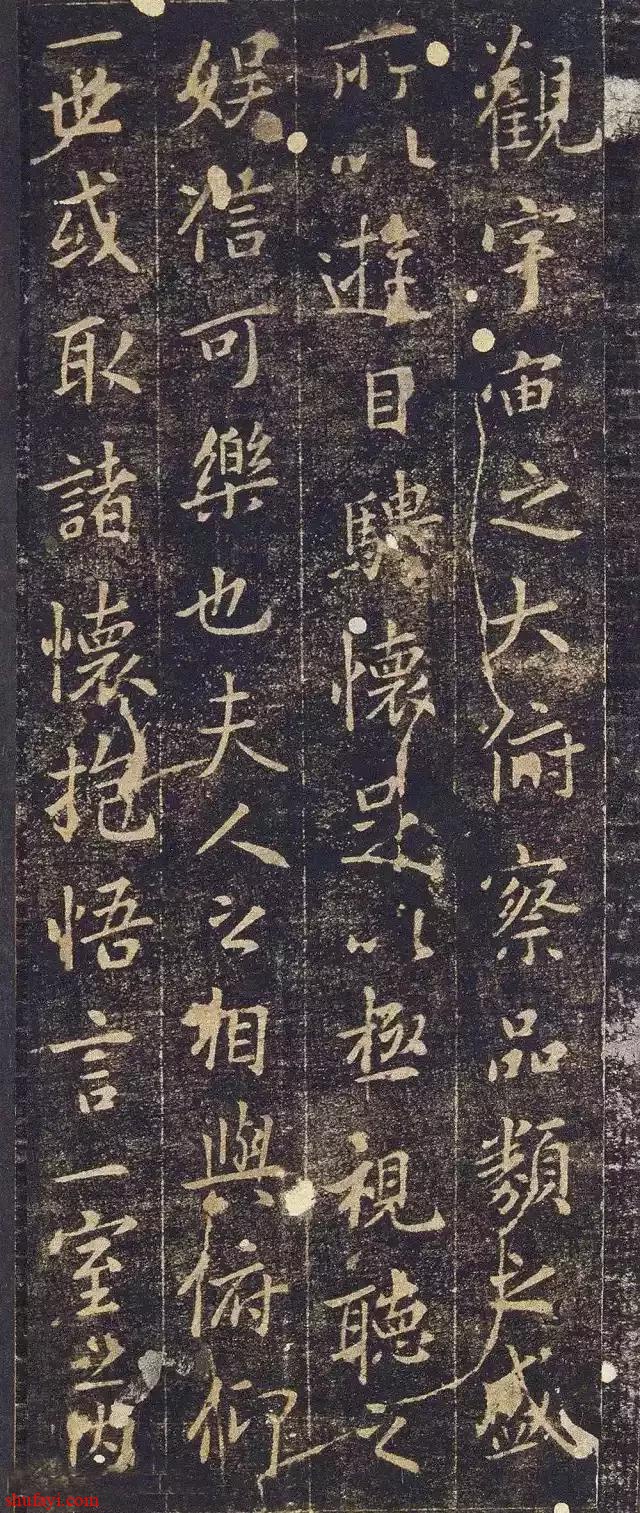 觀宇宙之大俯察品類之盛
所以遊目騁懷足以極視聽之
娛信可樂也夫人之相與俯仰
一世或取諸懷抱悟言一室之内
shufayi.com